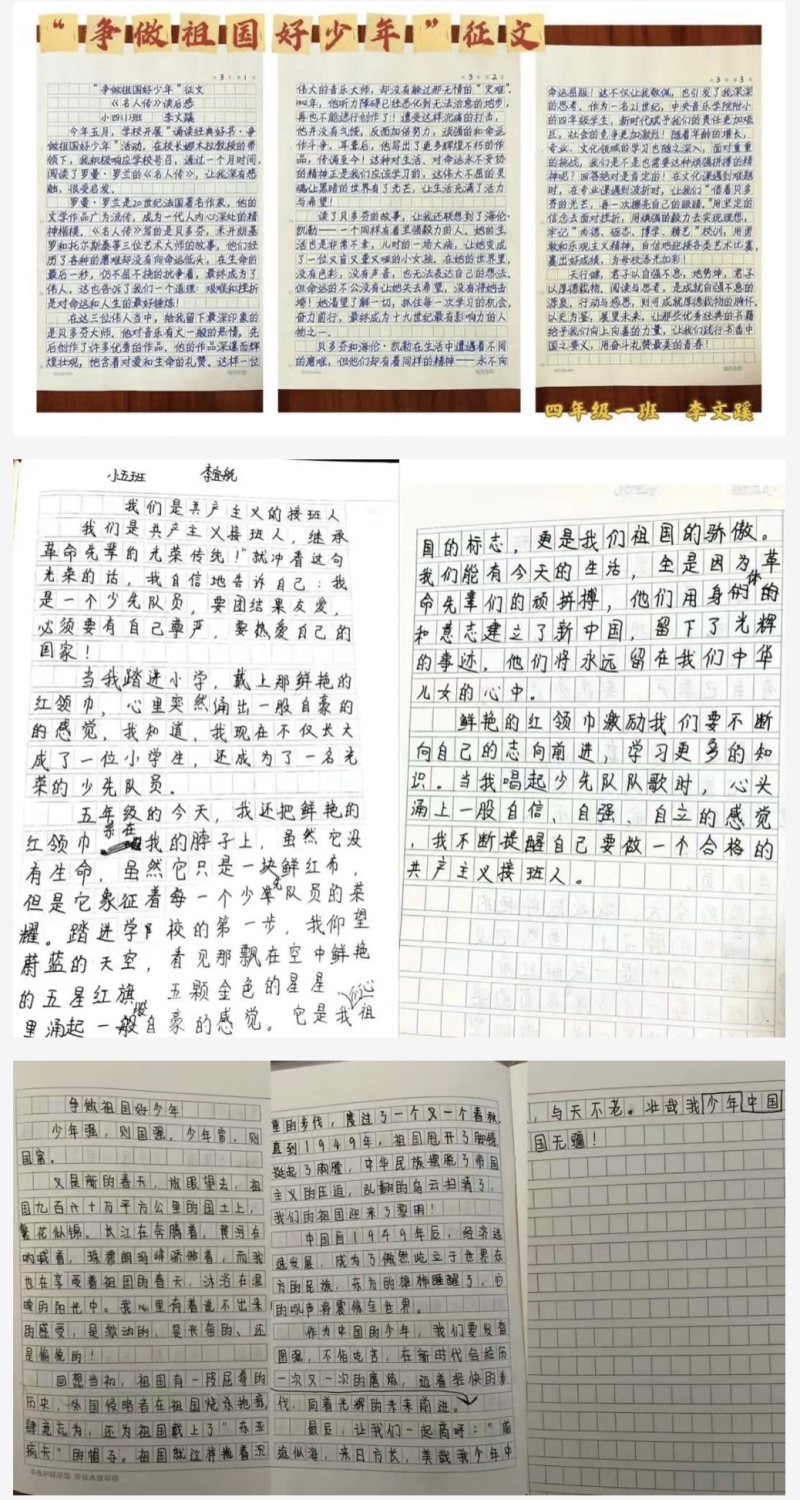 “争做祖国好少年”征文
共3页 第1页
“争做祖国好少年”征文
《名人传》读后感
小四(1)班 李文蹊
今年五月，学校开展“诵读经典好书·争
做祖国好少年”活动，在校长娜木拉教授的带
领下，我积极响应学校号召，通过一个月时间，
阅读了罗曼·罗兰的《名人传》，让我深有感
触，很受启发。
罗曼·罗兰是20世纪法国著名作家，他的
文学作品广为流传，成为一代人内心深处的精
神楷模。《名人传》写的是贝多芬、米开朗基
罗和托尔斯泰等三位艺术大师的故事，他们经
历了各种的磨难却没有向命运低头，在生命的
最后一秒，仍不屈不挠的抗争着，最终成为了
伟人。这也告诉了我们一个道理：艰难和挫折
是对命运和人生的最好锤炼！
在这三位伟人当中，给我留下最深印象的
是贝多芬大师，他对音乐有火一般的热情，先
后创作了许多优秀的作品。他的作品深邃而辉
煌壮观，饱含着对爱和生命的礼赞。这样一位
共3页 第2页
伟大的音乐大师，却没有躲过那无情的“灾难”。
年，他听力障碍已经恶化到无法治愈的地步，
再也不能进行创作了！遭受这样沉痛的打击，
他并没有气馁，反而加倍努力，顽强的和命运
作斗争。耳聋后，他写出了更多辉煌不朽的作
品，传诵至今！这种对生活、对命运永不妥协
的精神正是我们应该学习的，这伟大不屈的灵
魂让黑暗的世界有了光芒，让生活充满了活力
与希望！
读了贝多芬的故事，让我还联想到了海伦·
凯勒——一个同样有着坚强毅力的人。她的生
活也是非常不幸，儿时的一场大病，让她变成
了一位又盲又聋又哑的小女孩。在她的世界里，
没有色彩，没有声音，也无法表达自己的想法。
但命运的不公没有让她失去希望，没有将她击
垮！她渴望了解一切，抓住每一次学习的机会，
奋力前行，最终成为十九世纪最有影响力的人
物之一。
贝多芬和海伦·凯勒在生活中遭遇着不同
的磨难，但他们却有着同样的精神——永不向
共3页 第3页
命运屈服！这不仅让我敬佩，也引发了我深深
的思考。作为一名21世纪，中央音乐学院附小
的四年级学生，新时代赋予我们的责任更加艰
巨，社会的竞争更加激烈！随着年龄的增长，
专业、文化领域的学习也随之深入，面对重重
的挑战，我们是不是也需要这种顽强拼搏的精
神呢？回答绝对是肯定的！在文化课遇到难题
时，在专业课遇到波折时，让我们“借着贝多
芬的光芒，吾一次擦亮自己的眼睛，”用坚定的
信念去面对挫折，用顽强的毅力去实现理想，
牢记“尚德、砺志、博学、精艺”校训，用勇
敢和乐观主义精神，自信地迎接各类艺术比赛，
赛出好成绩，为母校添光加彩！
天行健，君子以自强不息，地势坤，君子
以厚德载物。阅读与思考，是成就自强不息的
源泉，行动与感恩，则可成就厚德载物的胸怀。
以史为鉴，展望未来，让那些优秀经典的书籍
给予我们向上向善的力量，让我们践行书香中
国之要义，用奋斗礼赞最美的青春！
四年级一班 李文蹊
小五班 李宜航
我们是共产主义的接班人
我们是共产主义接班人，继承
革命先辈的光荣传统！”就冲着这句
光荣的话，我自信地告诉自己：我
是一个少先队员，要团结果友爱，
必须要有自己尊严，要热爱自己的
国家！
当我踏进小学，戴上那鲜艳的
红领巾，心里突然涌出一股自豪的
的感觉，我知道，我现在不仅长大
成了一位小学生，还成为了一名光
荣的少先队员。
五年级的今天，我还把鲜艳的
红领巾系在我的脖子上，虽然它没
有生命，虽然它只是一块鲜红布，
但是它象征着每一个少先队员的荣
耀。踏进学校的第一步，我仰望
蔚蓝的天空，看见那飘在空中鲜艳
的五星红旗 五颗金色的星星 心
里涌起一股自豪的感觉。它是我祖
国的标志，更是我们祖国的骄傲。
我们能有今天的生活，全是因为革
命先辈们的顽拼搏，他们用身体的
和意志建立了新中国，留下了光辉
的事迹，他们将永远留在我们中华
儿女的心中。
鲜艳的红领巾激励我们要不断
向自己的志向前进，学习更多的知
识。当我唱起少先队队歌时，心头
涌上一股自信、自强、自立的感觉
，我不断提醒自己要做一个合格的
共产主义接班人。
争做祖国好少年
少年强，则国强，少年富，则
国富。
又是新的春天，放眼望去，祖
国九百六十万平方公里的国土上，
繁花似锦。长江在奔腾着，黄河在
呐喊着，珠穆朗玛峰骄傲着，而我
也在享受着祖国的春天，沐浴在温
暖的阳光中。我心里有着说不出来
的感受，是激动的、是兴奋的、还
是愉悦的！
回想当初，祖国有一段屈辱的
历史，外国侵略者在祖国烧杀抢掠
肆意妄为，还为祖国戴上了“东亚
病夫”的帽子。祖国就这样拖着沉
重的步伐，度过了一个又一个春秋，
直到1949年，祖国甩开了脚镣
挺起了胸膛，中华民族摆脱了帝国
主义的压迫，乱翻的乌云扫清了，
我们的祖国迎来了黎明！
中国自1949年后，经济迅
速发展，成为了傲然屹立于世界东
方的民族，东方的雄狮睡醒了，它
的吼声将震惊全世界。
作为中国的少年，我们要发奋
图强，不怕吃苦，在新时代会经历
一次又一次的磨练，迈着轻快的步
伐，向着光辉的未来前进。
最后，让我们一起高呼：“前
途似海，来日方长，美哉我少年中
，与天不老。壮哉我少年中国
国无疆！